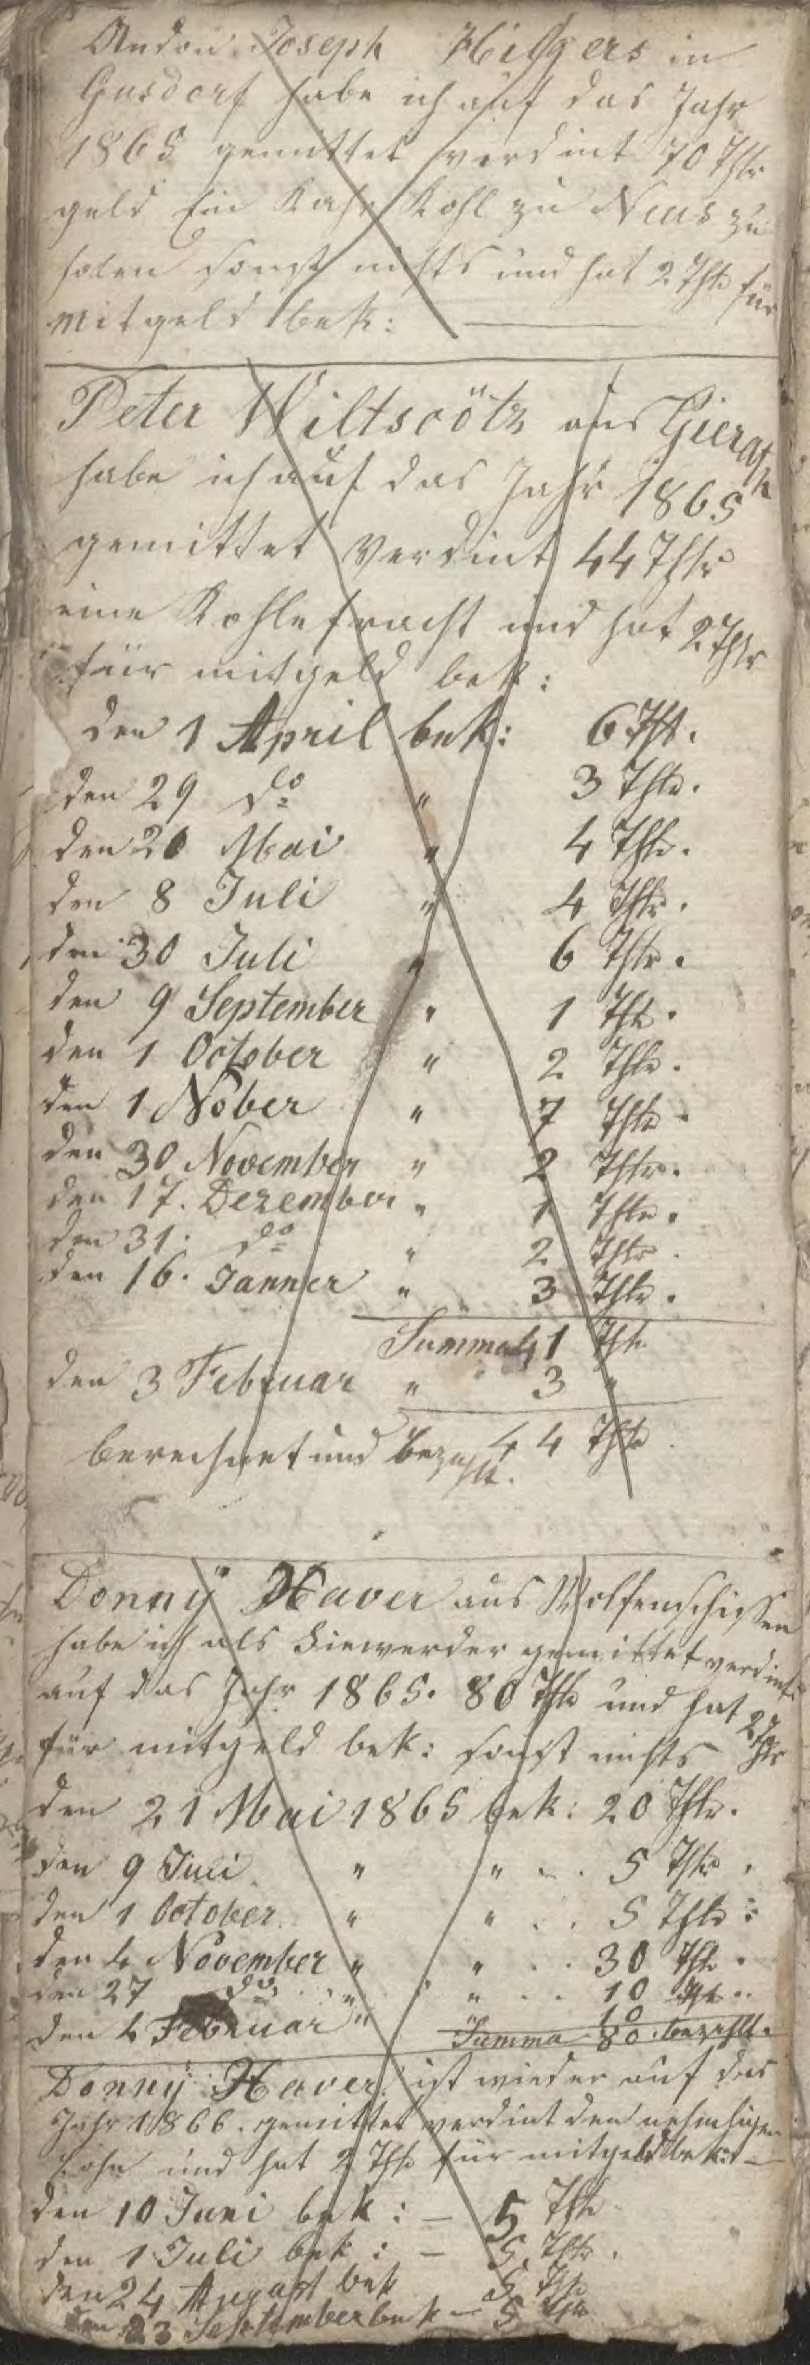 Andon Joseph Hilgers in
Gusdorf habe ich auf das Jahr
1865 gemittet verdint 70 Thlr
geld Ein Kahr Kohl zu Neus zu
holen sonst nichts und hat 2 Thlr für
mitgeld bek:
Peter Wiltscötz aus Gierath
habe ich auf das Jahr 1865
gemittet verdint 44 Thlr
eine Kohlefracht und hat 2 Thlr
für mitgeld bek:
den 1 April bek: 6 Thl.
den 29 do " 3 Thlr.
den 20 Mai " 4 Thlr.
den 8 Juli " 4 Thlr.
den 30 Juli " 6 Thlr.
den 9 September " 1 Thl.
den 1 October " 2 Thlr.
den 1 Nober " 7 Thlr
den 30 November " 2 Thlr.
den 17. Dezember " 1 Thlr.
den 31. do " 2 Thlr.
den 16. Janner " 3 Thlr.
Summa 41 Thlr
den 3 Februar " 3 "
44 Thlr
berechnet und bezahlt.
Donny Haver aus Wolfenschissen
habe ich als gemittet verdint
auf das Jahr 1865. 80 Thlr und hat 2 Thlr
für mitgeld bek: sonst nichts
den 21 Mai 1865 bek: 20 Thlr.
den 9 Juli " " 5 Thlr.
den 1 October " " 5 Thlr.
den 4 November " " 30 Thlr.
den 27 do " " 10 Thl.
den 4 Februar " " 10
Summa 80. bezahlt.
Donny Haver ist wieder auf das
Jahr 1866. gemittet verdint den
Lohn und hat 2 Thlr für mitgeld bek:
den 10 Juni bek: — 5 Thlr
den 1 Juli bek: — 5 Thlr.
den 24 August bek 5 Thlr
den 23 September bek — 5 Thlr